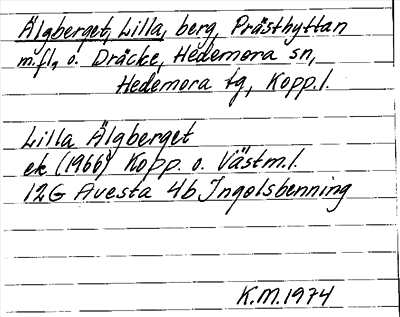 Älgberget, Lilla, berg, Prästhyttan
m.fl, o. Dräcke, Hedemora sn,
Hedemora tg, Kopp.l.
Lilla Älgberget
ek (1966) Kopp. o. Västm.l.
12G Avesta 4b Ingolsbenning
K.M.1974